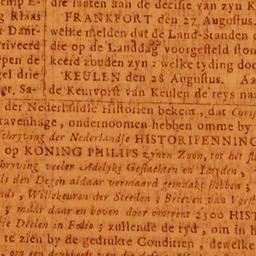 emp E-
ns Klaas
t Dant-
rriveerd
epen de
gel drie
er, Sa-
die lanten aan de decisie van zyn K
FRANKFORT den 27 Augustus.
welke melden dat de Land-Standen
die op de Landdag voorgesteld ston
keerd zouden zyn : welke tyding doo
KEULEN den 28 Augustus. Aa
de Keurvorst van Keulen de reys na
der Nederlandse Historien bekent, dat Chris
ravenhage, ondernoomen hebben omme by
chryving der Nederlandse HISTORIPENNING
op KONING PHILIPS zynen Zoon, tot het slu
hryving veeler Adelyke Geslachten en Luyden,
ls den Degen aldaar vermaard gemaakt hebben ;
nds, Willekeuren der Steeden ; Brieven van Vorst
; maar daar en boven door omtrent 2300 HIST
ie Deelen in Folio ; zullende de tyd, om in h
te zien by de gedrukte Conditien, dewelke